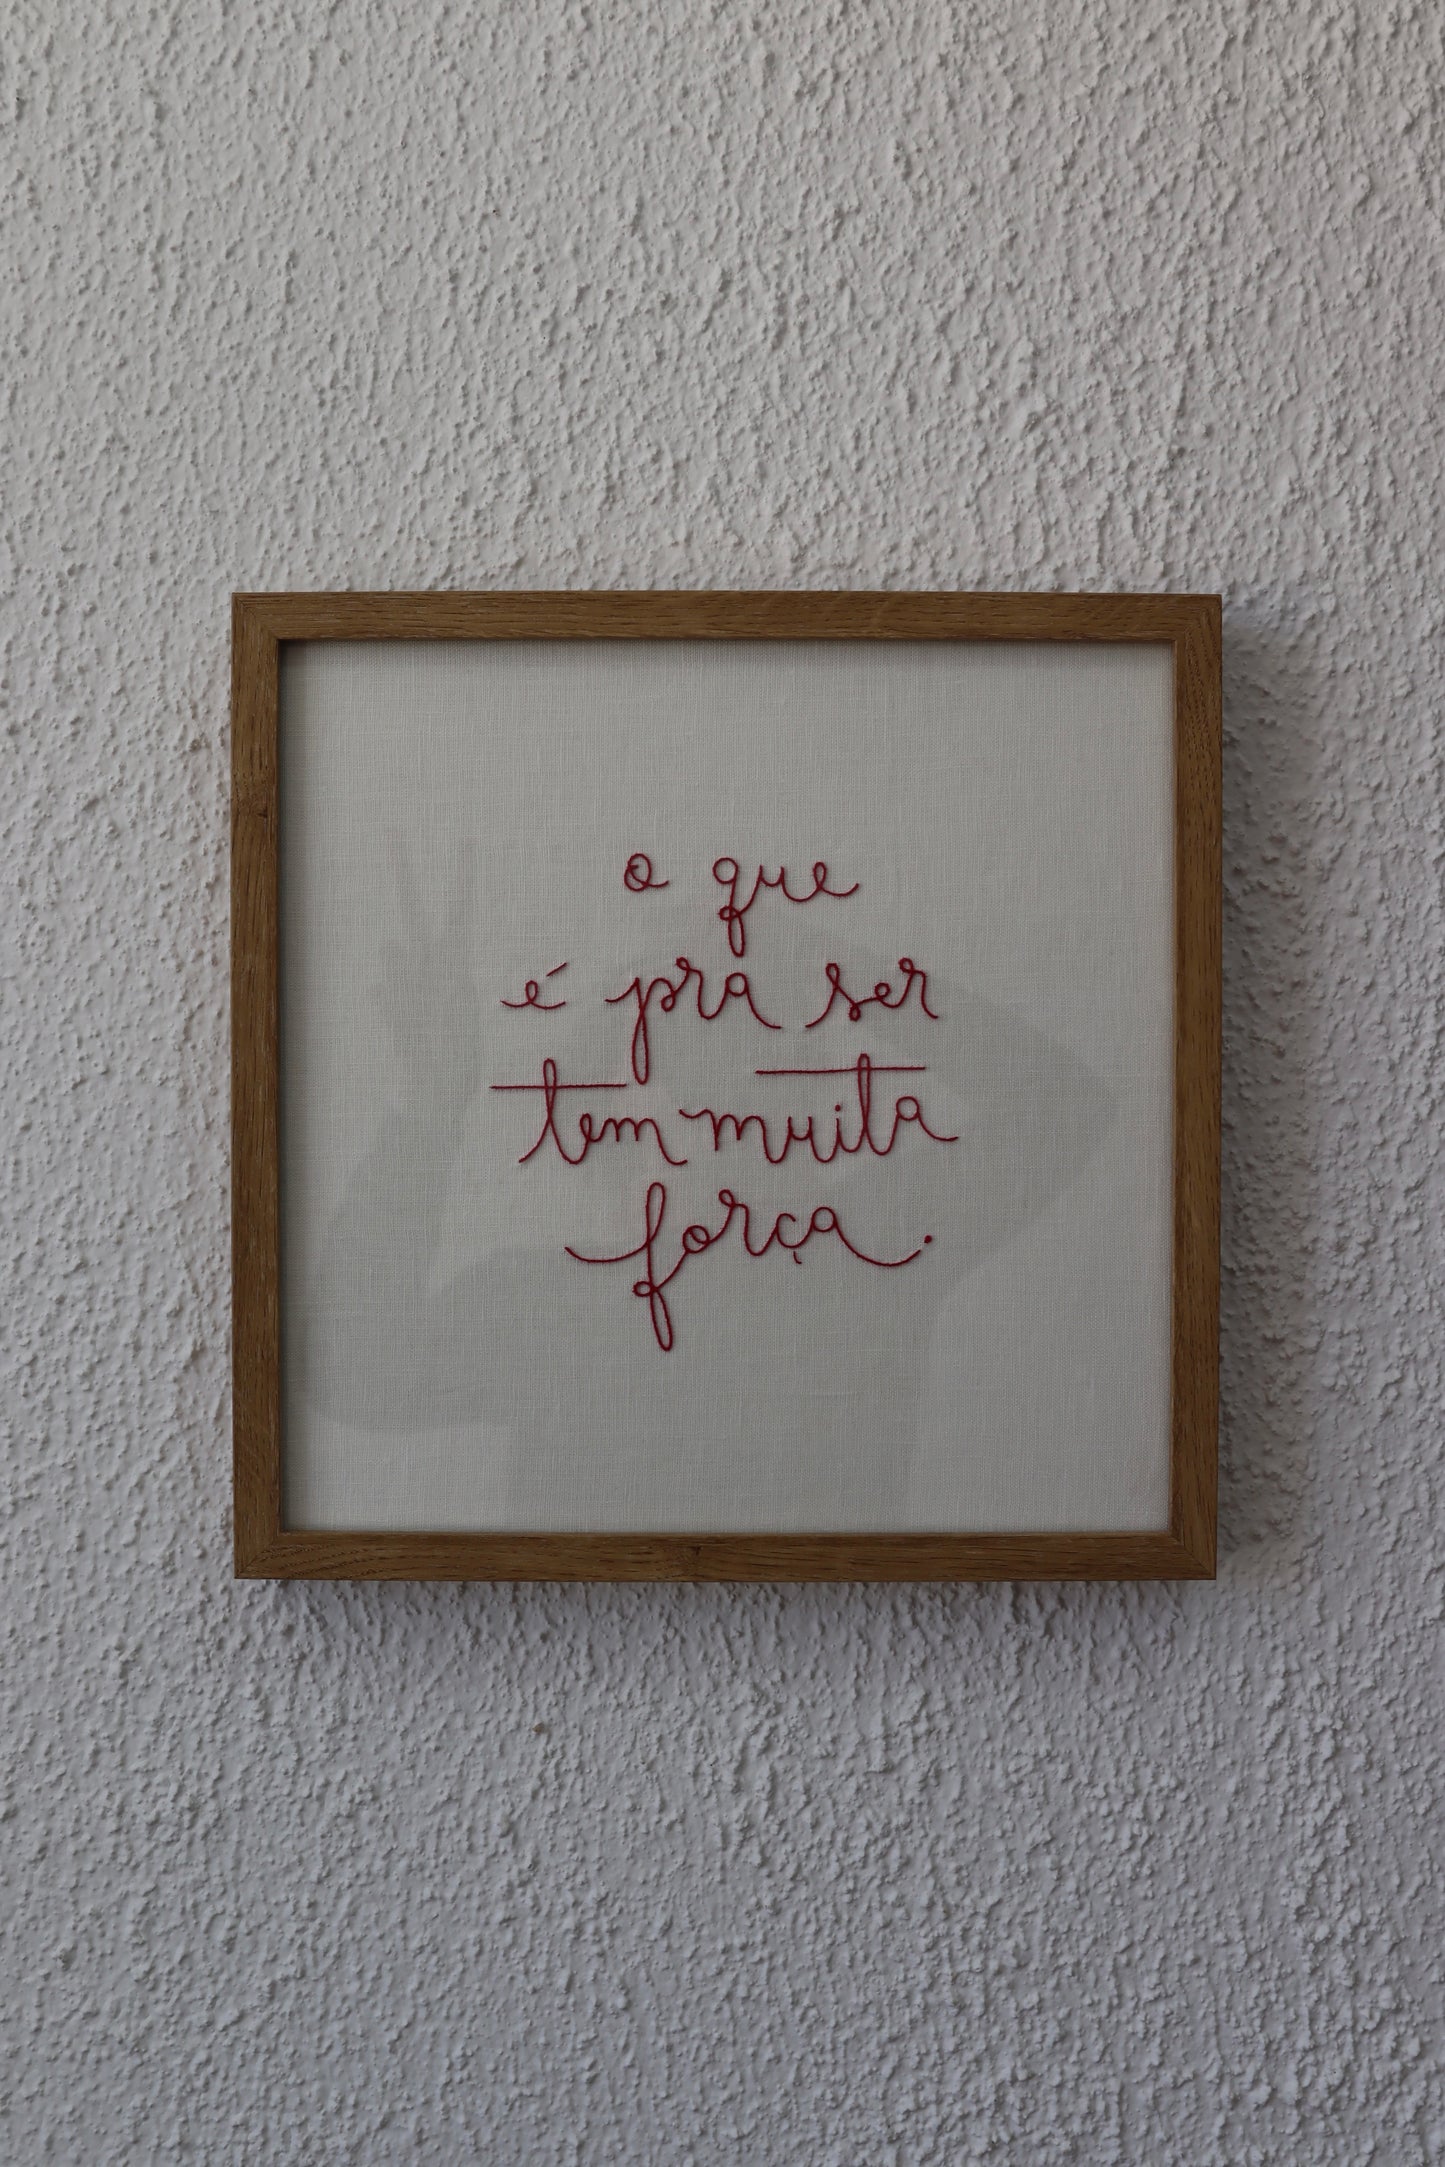 o que
é pra ser
tem muita
força.